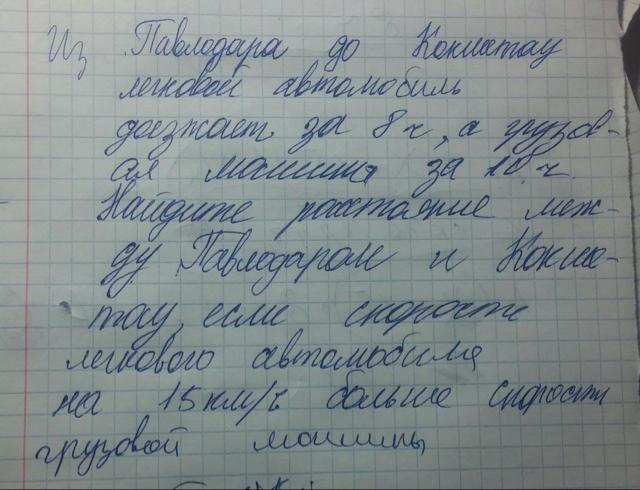 Из Павлодара до Кокчетау
легковой автомобиль
доезжает за 8 ч, а грузов-
ая машина за 10 ч.
Найдите расстояние меж-
ду Павлодаром и Кокче-
тау, если скорость
легкового автомобиля
на 15 км/ч больше скорости
грузовой машины